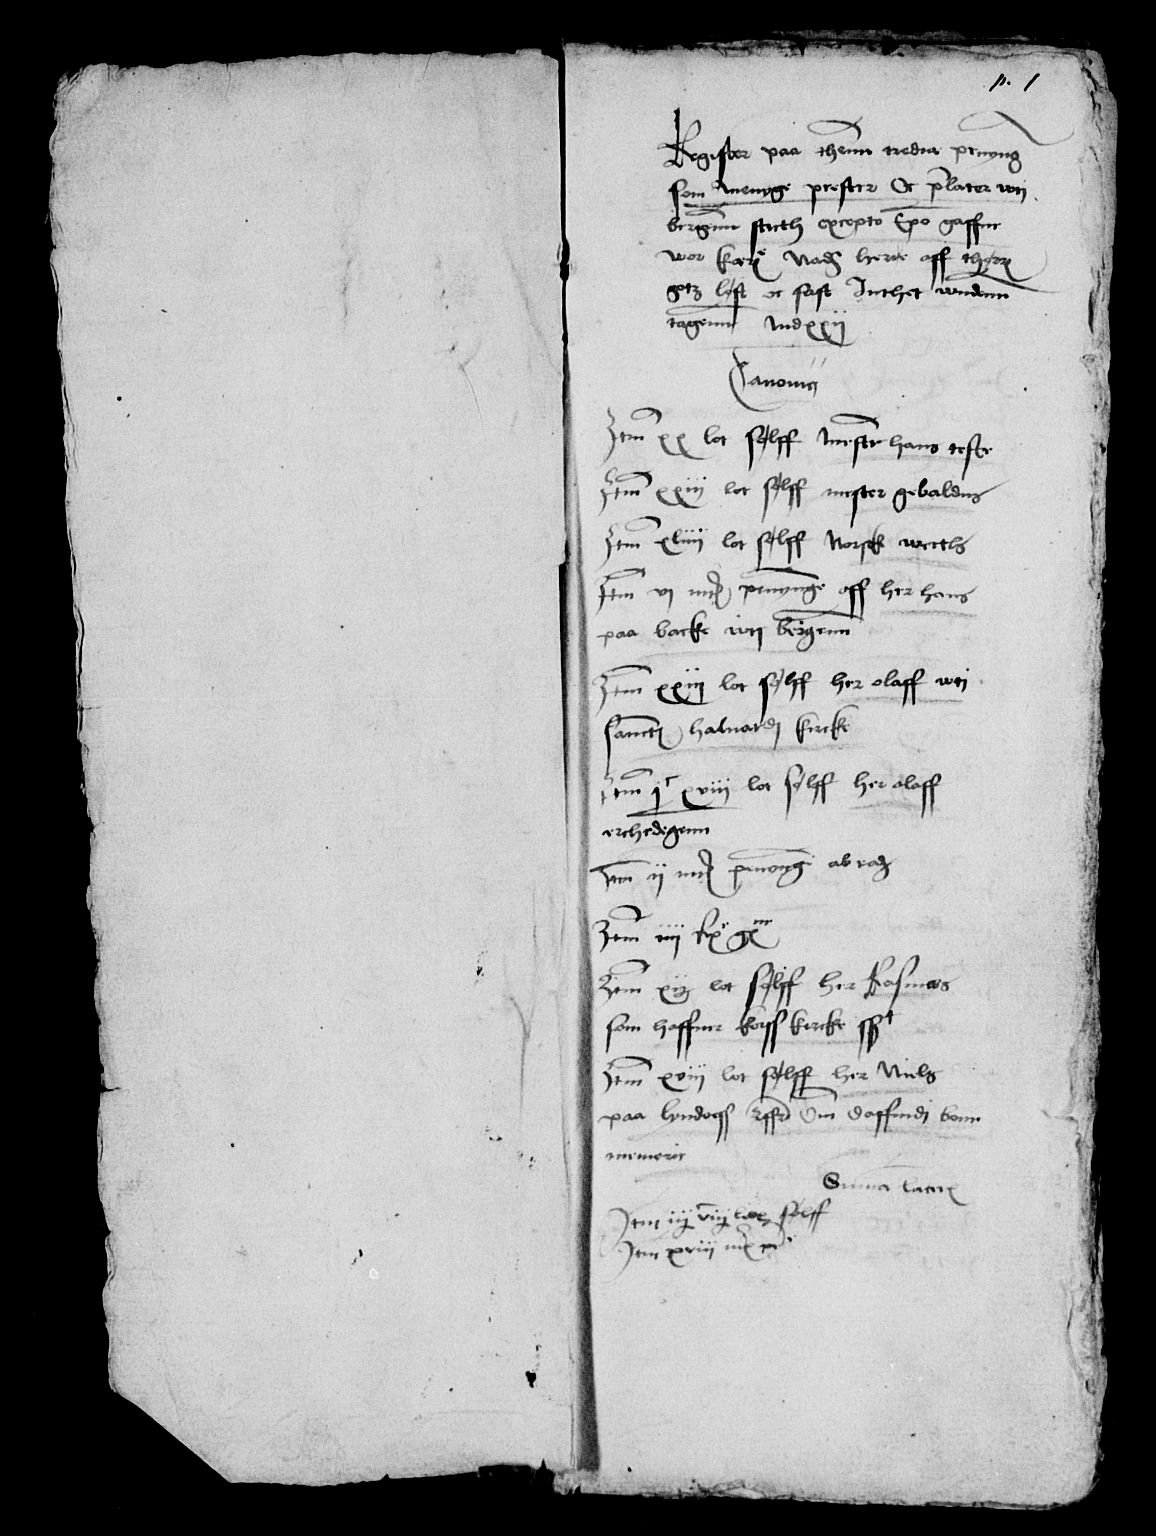 p. 1
Register paa thenn tredie penning
som menige prester Oc prelater wti
bergenn sticth excepto Epo gaffue
wor kere Nad herre aff there
gotz løst oc fast Inthet wndenn
tagenn Mdxxij
Canonici
Item xx lot sølff mester hans teste
Item xxiij lot sølff mester gebaldus
Item xliiij lot sølff Norsk wecth
Item vj mrk penninge aff her hans
paa backe wti bergenn
Item xxiij lot sølff her olaff wti
sancti haluardi kircke
Item jc xviij lot sølff her olaff
erchedegenn
Item ij mrk penninge
Item iiij
Item xij lot sølff her Rasmus
som haffuer korss kircke
Item xviij lot sølff her Niels
paa lyndoess daffindi bone
memorie
Summa lateris
Item lot sølff
Item xviij mrk